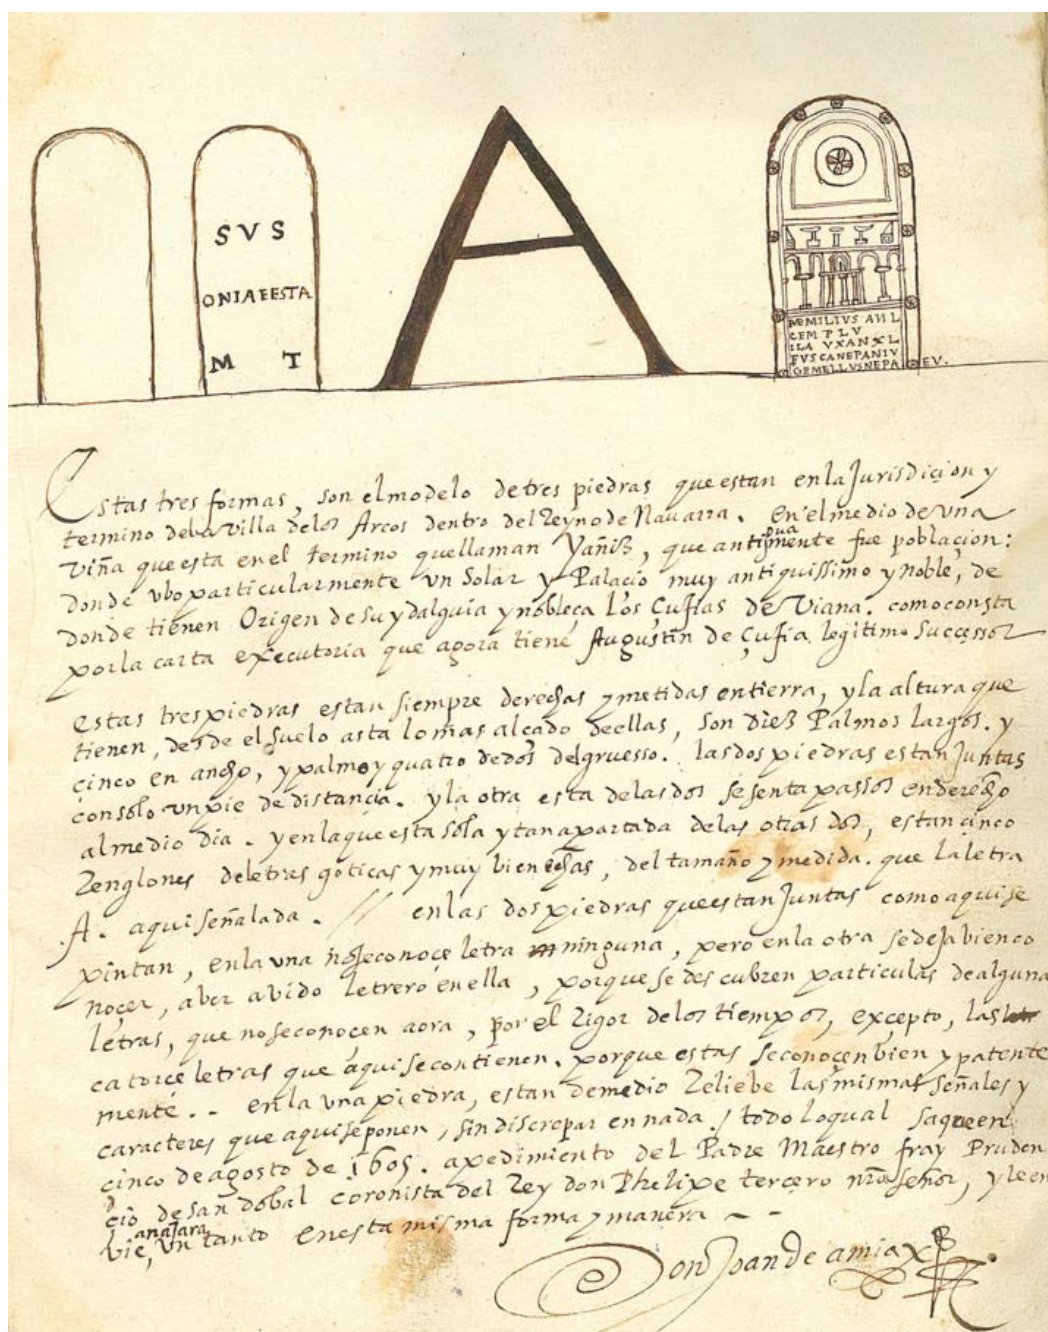 SVS
ONIAEESTA
M T
A
AEMILIVS AVIL
CEMPLV
ILA VXANXL
FVSCANEPANIV
GEMELLVSNEPA EV.
Estas tres formas, son elmodelo detres piedras que estan enla Jurisdiçion y
termino dela villa delos Arcos dentro del Reyno de Nauarra. en el medio de vna
viña que esta en el termino quellaman yañiz, que antiguamente fue poblaçion:
donde vbo particularmente vn Solar y Palacio muy antiquissimo y noble, de
donde tienen Origen de su ydalguia y nobleça Los Çuñias de Viana. como consta
por la carta executoria que agora tiene Augustin de Çuñia legitimo Successor
estas tres piedras estan siempre derechas y metidas entierra, y la altura que
tienen, desde el suelo asta lo mas alçado deellas, son diez Palmos largos. y
cinco en ancho, y palmo y quatro dedos del gruesso. las dos piedras estan Juntas
con solo vn pie de distancia. y la otra esta delas dos sesenta passos enderecho
al medio dia. y enla que esta sola y tan apartada delas otras dos, estan çinco
Renglones deletras goticas y muy bien echas, del tamaño y medida. que la letra
A. aqui señalada. // enlas dos piedras que estan Juntas como aqui se
pintan, enla vna no seconoçe letra ninguna, pero enla otra se deja bien co
noçer, aber abido letrero en ella, porque se descubren particulas de alguna
letras, que no seconocen aora, por el Rigor delos tiempos, exçepto, las
catorce letras que aqui secontienen. porque estas seconoçen bien y patente
mente.. en la vna piedra, estan demedio Reliebe las mismas señales y
caracteres que aqui seponen, sin discrepar en nada / todo loqual saque en
cinco de agosto de 1605. a pedimiento del Padre Maestro fray Pruden
çio de san dobal coronista del Rey don Phelipe tercero nro señor, y le en
vie, a najara vn tanto en esta misma forma y manera - -
Don Joan de amiax